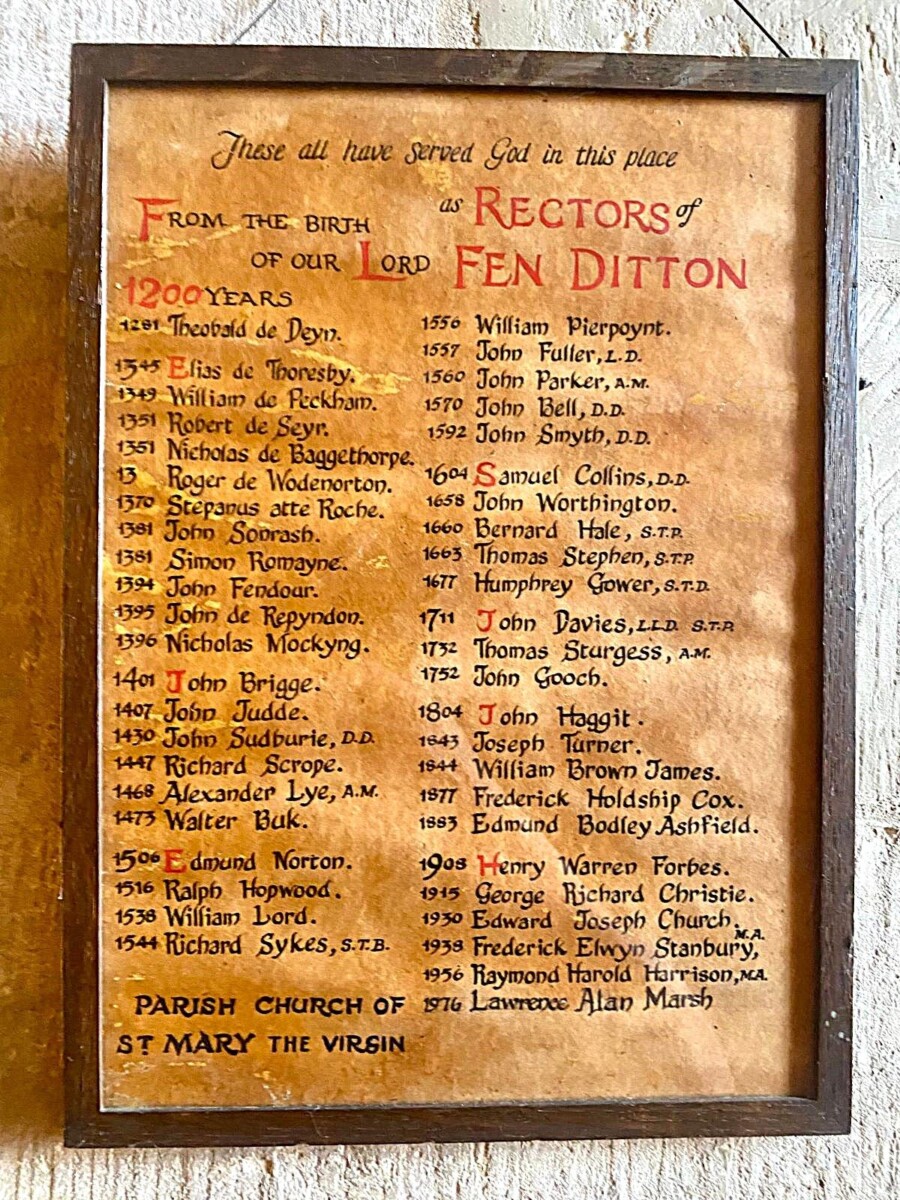 These all have served God in this place
as RECTORS of
FROM THE BIRTH
OF OUR LORD
FEN DITTON
1200 YEARS
1281 Theobald de Deyn.
1345 Elias de Thoresby.
1349 William de Peckham.
1351 Robert de Seyr.
1351 Nicholas de Baggethorpe.
13 Roger de Wodenorton.
1370 Stepanus atte Roche.
1381 John Sonrash.
1381 Simon Romayne.
1394 John Fendour.
1395 John de Repyndon.
1396 Nicholas Mockyng.
1401 John Brigge.
1407 John Judde.
1430 John Sudburie, D.D.
1447 Richard Scrope.
1468 Alexander Lye, A.M.
1473 Walter Buk.
1506 Edmund Norton.
1516 Ralph Hopwood.
1538 William Lord.
1544 Richard Sykes, S.T.B.
PARISH CHURCH OF
ST MARY THE VIRGIN
1556 William Pierpoynt.
1557 John Fuller, L.D.
1560 John Parker, A.M.
1570 John Bell, D.D.
1592 John Smyth, D.D.
1604 Samuel Collins, D.D.
1658 John Worthington.
1660 Bernard Hale, S.T.P.
1663 Thomas Stephen, S.T.P.
1677 Humphrey Gower, S.T.D.
1711 John Davies, L.L.D. S.T.P.
1732 Thomas Sturgess, A.M.
1752 John Gooch.
1804 John Haggit.
1843 Joseph Turner.
1844 William Brown James.
1877 Frederick Holdship Cox.
1883 Edmund Bodley Ashfield.
1908 Henry Warren Forbes.
1915 George Richard Christie.
1930 Edward Joseph Church.
1938 Frederick Elwyn Stanbury, M.A.
1956 Raymond Harold Harrison, M.A.
1976 Lawrence Alan Marsh